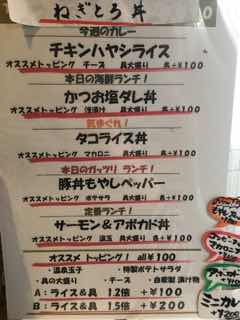 ねぎとろ丼
今週のカレー
チキンハヤシライス
オススメトッピング チーズ 具大盛り 各+¥100
本日の海鮮ランチ!
かつお塩ダレ丼
オススメトッピング 浅漬け 具大盛り 各+¥100
気まぐれ!
タコライス丼
オススメトッピング マカロニ 具大盛り 各+¥100
本日のガッツリ ランチ!
豚丼もやしペッパー
オススメトッピング ポテサラ 具大盛り 各+¥100
定番ランチ!
サーモン&アボカド丼
オススメトッピング 温玉 具大盛り 各+¥100
オススメ トッピング! all¥100
・温泉玉子 ・特製ポテトサラダ
・具の大盛り ・チーズ ・自家製漬け物
A:ライス&具 1.2倍 +¥100
B:ライス&具 1.5倍 +¥200
ミニカレ
+¥200